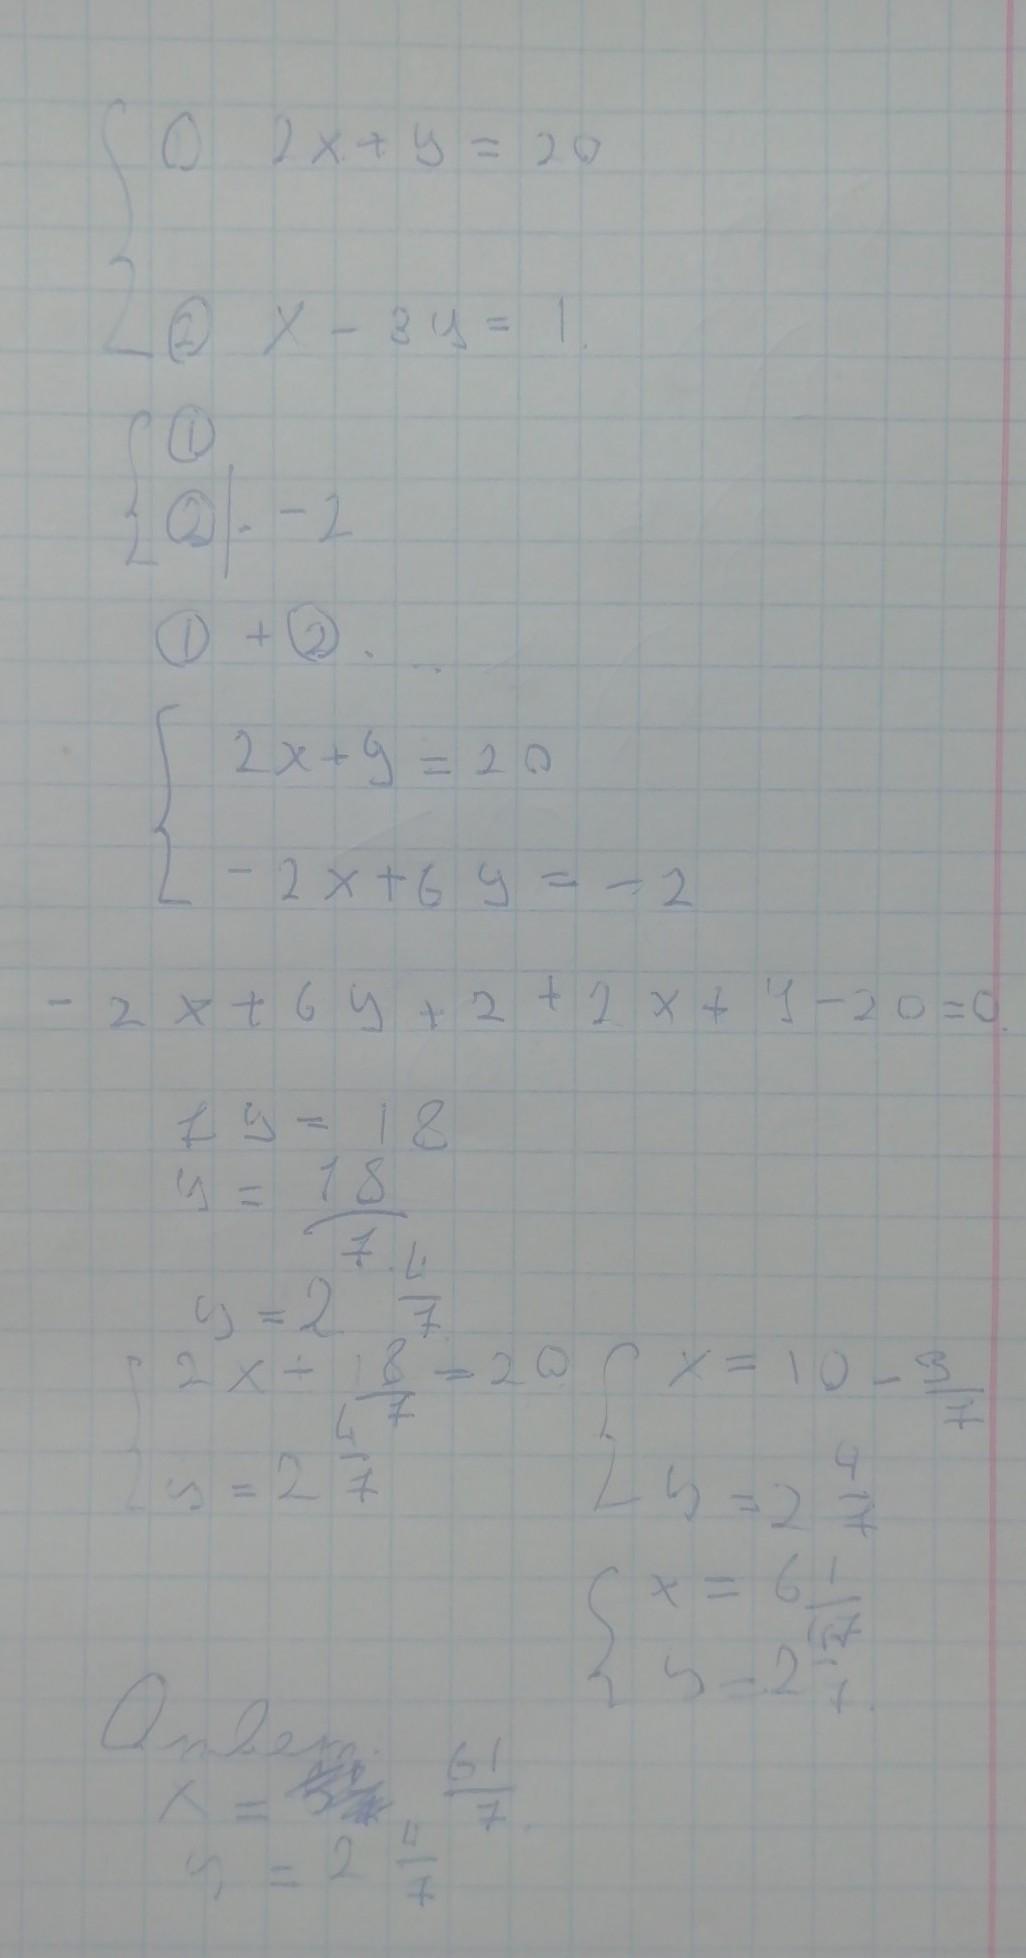 ① 2x + y = 20
② x - 3y = 1.
①
② | · -2
① + ②.
2x + y = 20
-2x + 6y = -2
-2x + 6y + 2 + 2x + y - 20 = 0.
7y = 18
y = 18/7.
y = 2 4/7
2x + 18/7 = 20
y = 2 4/7
x = 10 - 9/7
y = 2 4/7
x = 6 1/7
y = 2 /7.
Ответ.
x = 61/7.
y = 2 4/7